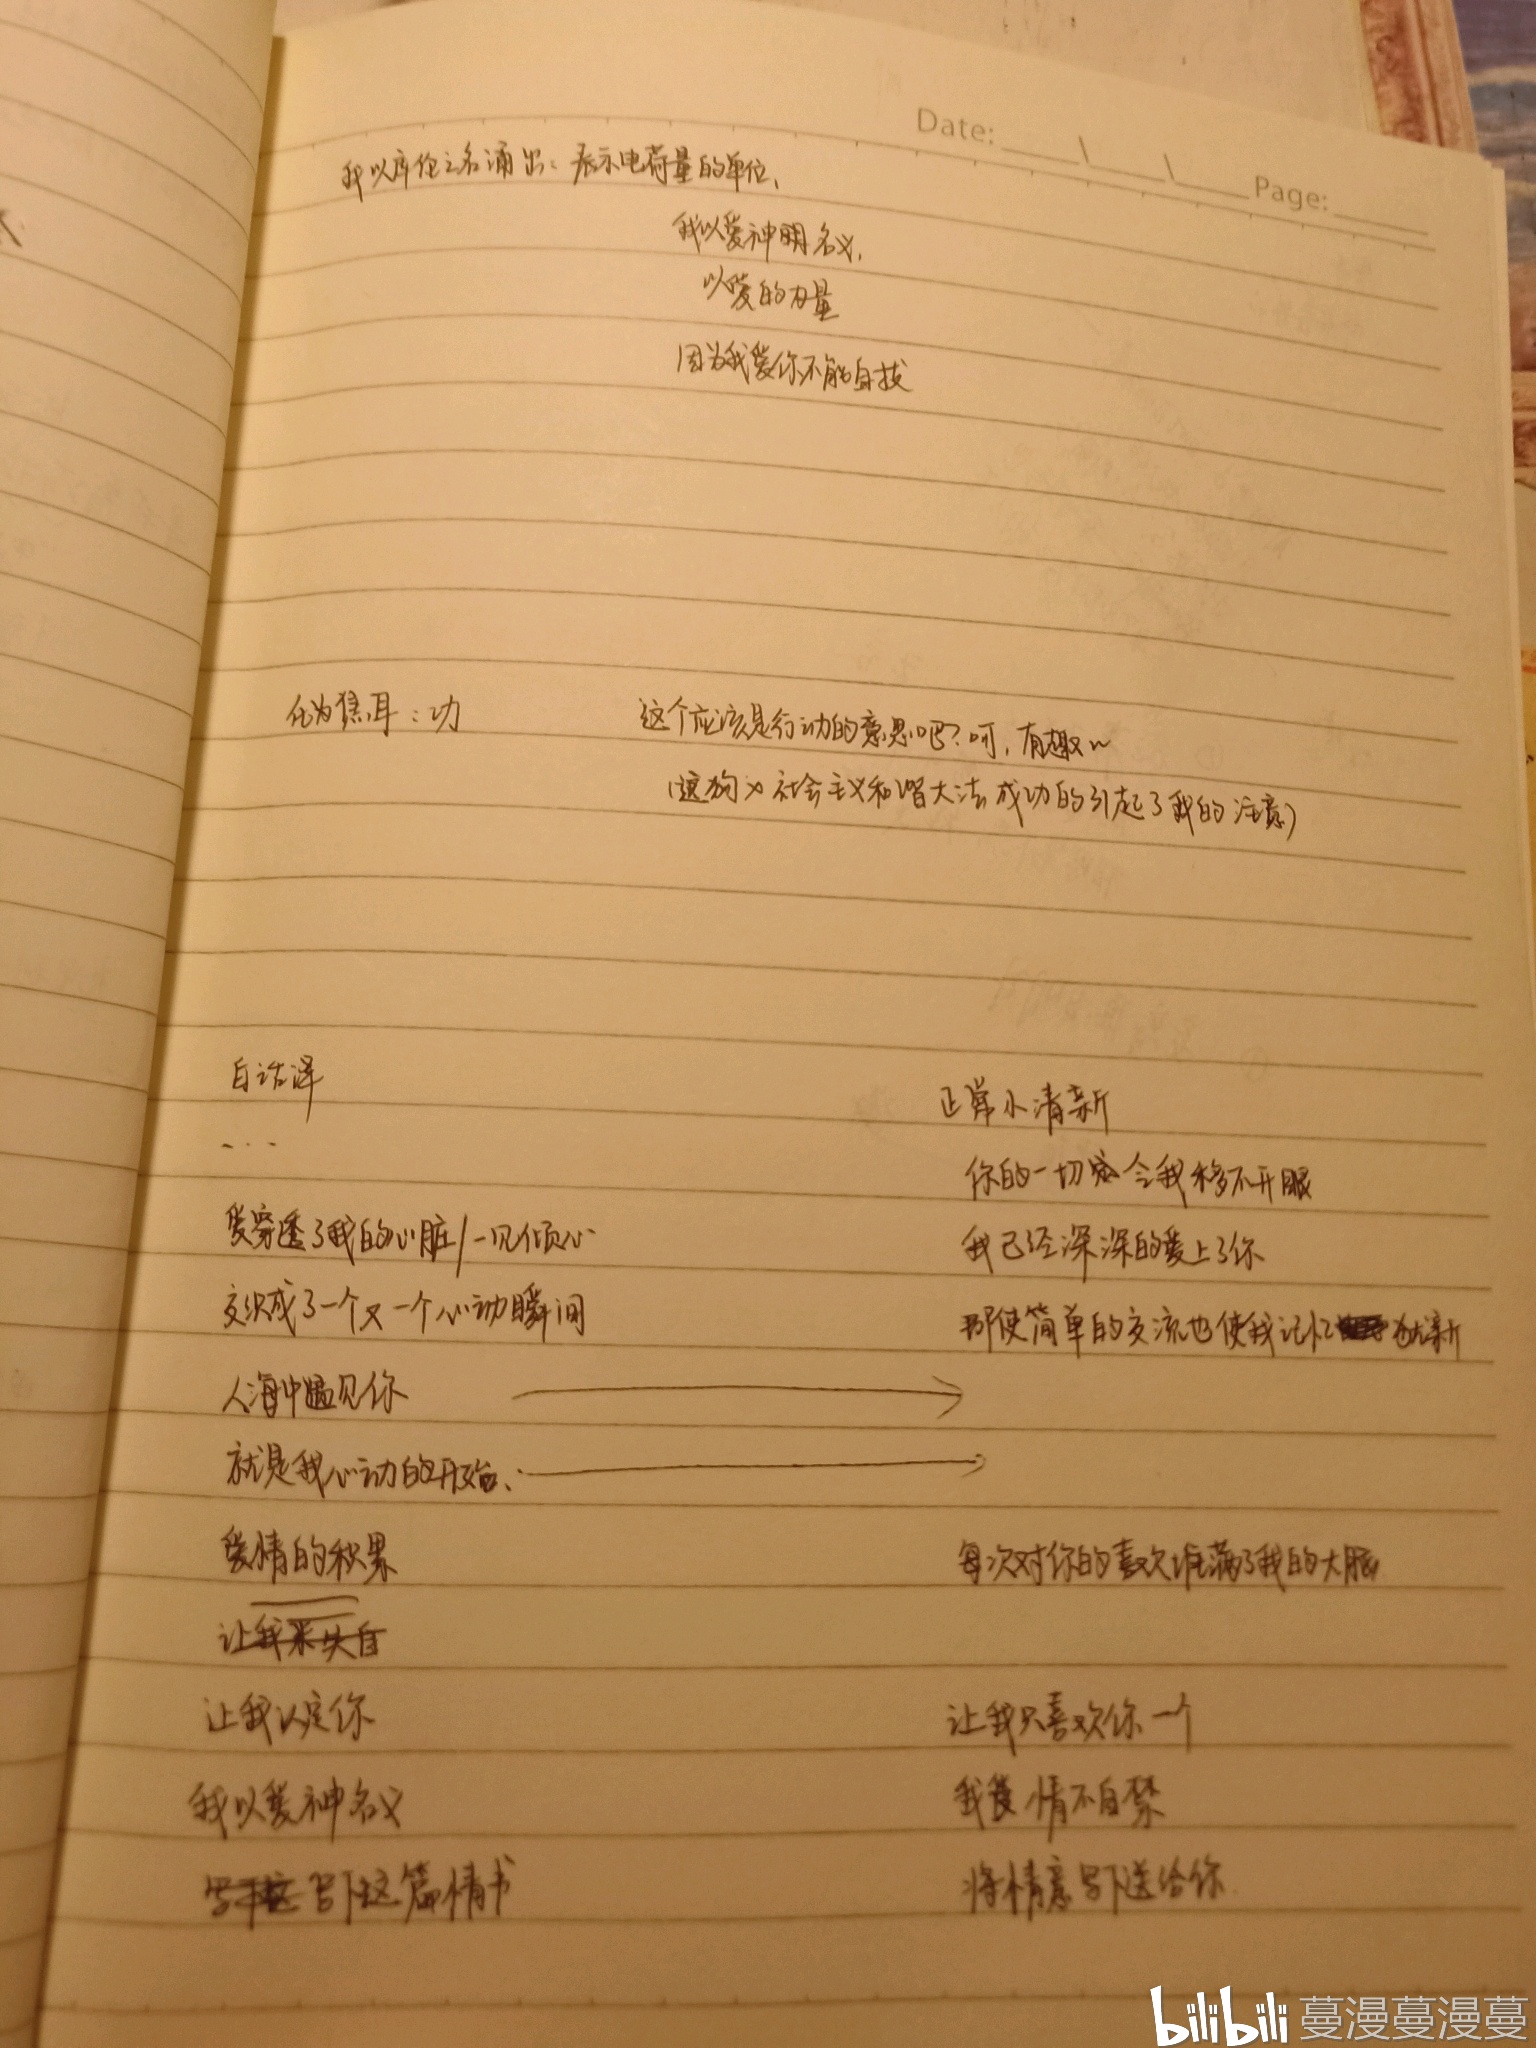 Date: ___\___\___ Page: ___
我以库伦之名涌出：表示电荷量的单位，
我以爱神明名义，
以爱的力量
因为我爱你不能自拔
化为焦耳：功
这个应该是行动的意思吧？呵，有趣~
社会主义和谐大法成功的引起了我的注意）
白话译
...
正常小清新
你的一切会令我移不开眼
爱穿透了我的心脏/一见倾心
我已经深深的爱上了你
交织成了一个又一个心动瞬间
即使简单的交流也使我记忆犹新
人海中遇见你
就是我心动的开始、
爱情的积累
每次对你的喜欢堆满了我的大脑
让我
让我认定你
让我只喜欢你一个
我以爱神名义
我情不自禁
写下这篇情书
将情意写下送给你
bilibili 蔓漫蔓漫蔓